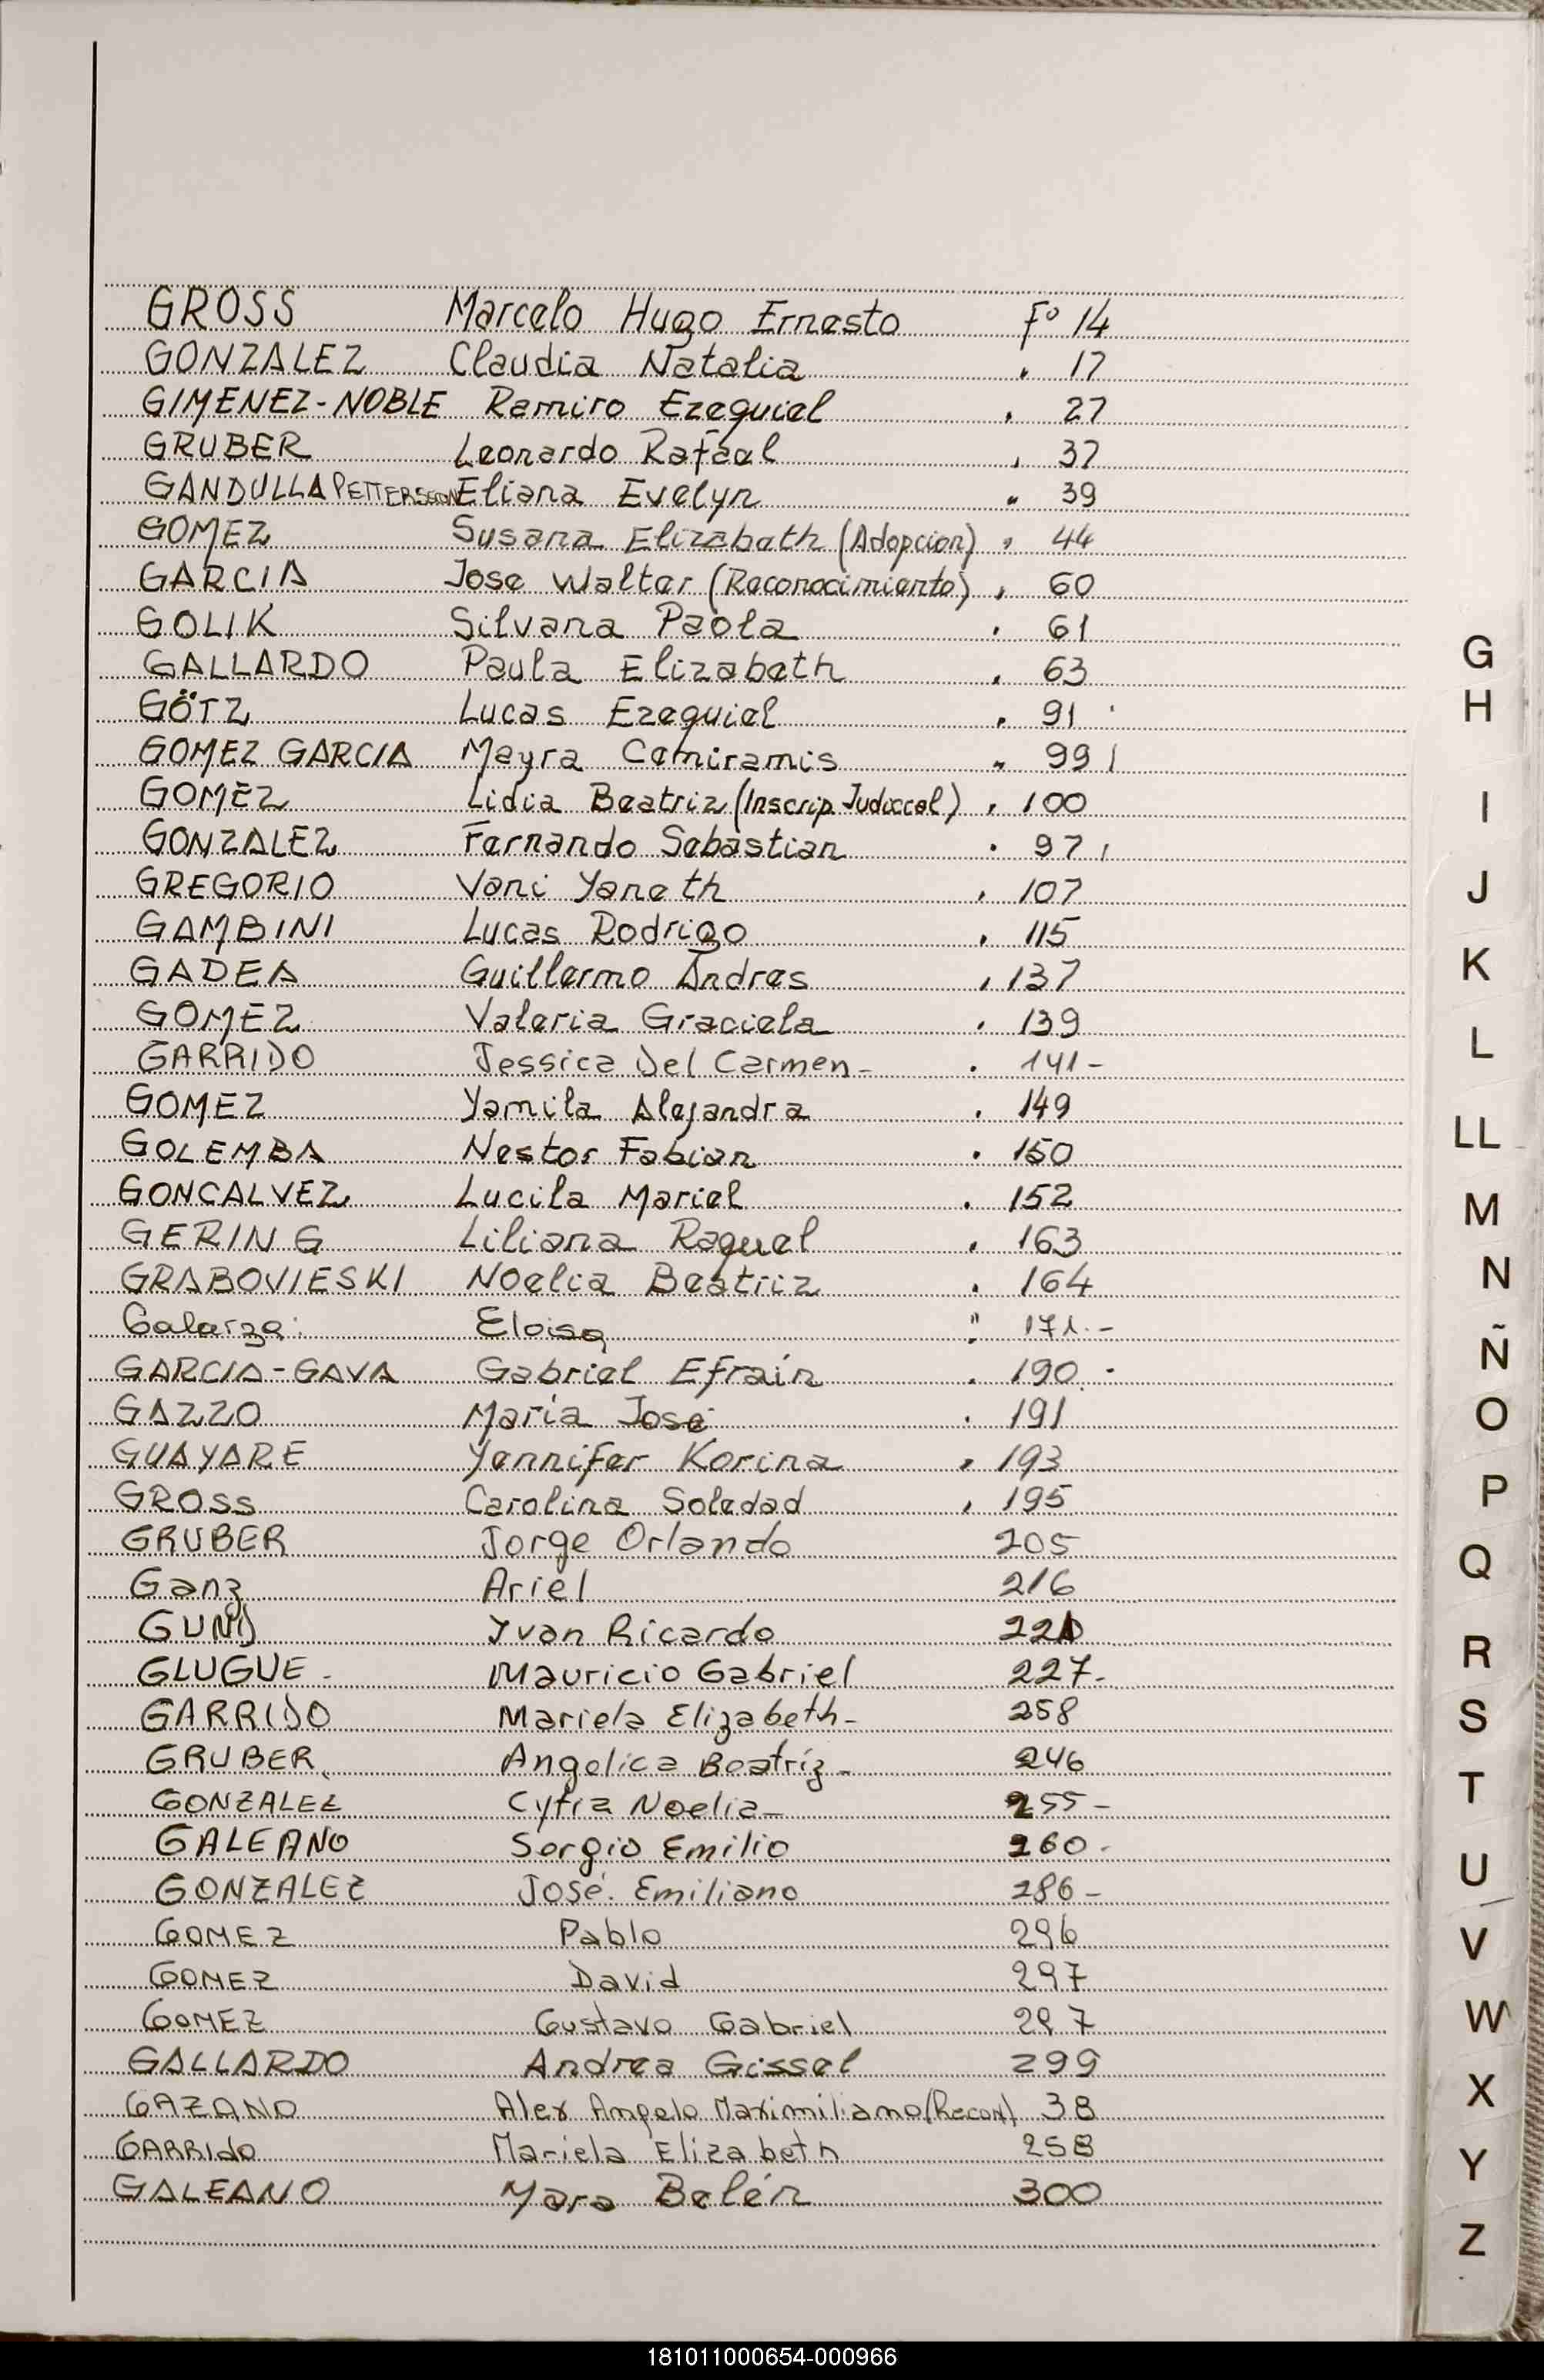 GROSS Marcelo Hugo Ernesto Fº 14
GONZALEZ Claudia Natalia " 17
GIMENEZ-NOBLE Ramiro Ezequiel " 27
GRUBER Leonardo Rafael " 37
GANDULLA PETTERSSON Eliana Evelyn " 39
GOMEZ Susana Elizabeth (Adopcion) " 44
GARCIA Jose Walter (Reconocimiento) " 60
GOLIK Silvana Paola " 61
GALLARDO Paula Elizabeth " 63
GÖTZ Lucas Ezequiel " 91
GOMEZ GARCIA Mayra Cemiramis " 99
GOMEZ Lidia Beatriz (Inscrip. Judiccal) " 100
GONZALEZ Fernando Sebastian " 97
GREGORIO Vani Yaneth " 107
GAMBINI Lucas Rodrigo " 115
GADEA Guillermo Andres " 137
GOMEZ Valeria Graciela " 139
GARRIDO Jessica Del Carmen - " 141 -
GOMEZ Yamila Alejandra " 149
GOLEMBA Nestor Fabian " 150
GONCALVEZ Lucila Mariel " 152
GERING Liliana Raquel " 163
GRABOVIESKI Noelia Beatriz " 164
Galarza Eloisa " 171.-
GARCIA-GAVA Gabriel Efraín " 190 -
GAZZO María José " 191
GUAYARE Yennifer Korina " 193
GROSS Carolina Soledad " 195
GRUBER Jorge Orlando 205
Ganz Ariel 216
Yvan Ricardo
GLUGUE - Mauricio Gabriel 227-
GARRIDO Mariela Elizabeth- 258
GRUBER Angelica Beatríz - 246
GONZALEZ Noelia - 255 -
GALEANO Sergio Emilio 260 -
GONZALEZ José Emiliano 286 -
GOMEZ Pablo 296
GOMEZ David 297
GOMEZ Gustavo Gabriel 297
GALLARDO Andrea Gissel 299
GAZANO Alex Angelo Maximiliano (Recon) 38
GARRIdo Mariela Elizabeth 258
GALEANO Yara Belén 300
G
H
I
J
K
L
LL
M
N
Ñ
O
P
Q
R
S
T
U
V
W
X
Y
Z
181011000654-000966